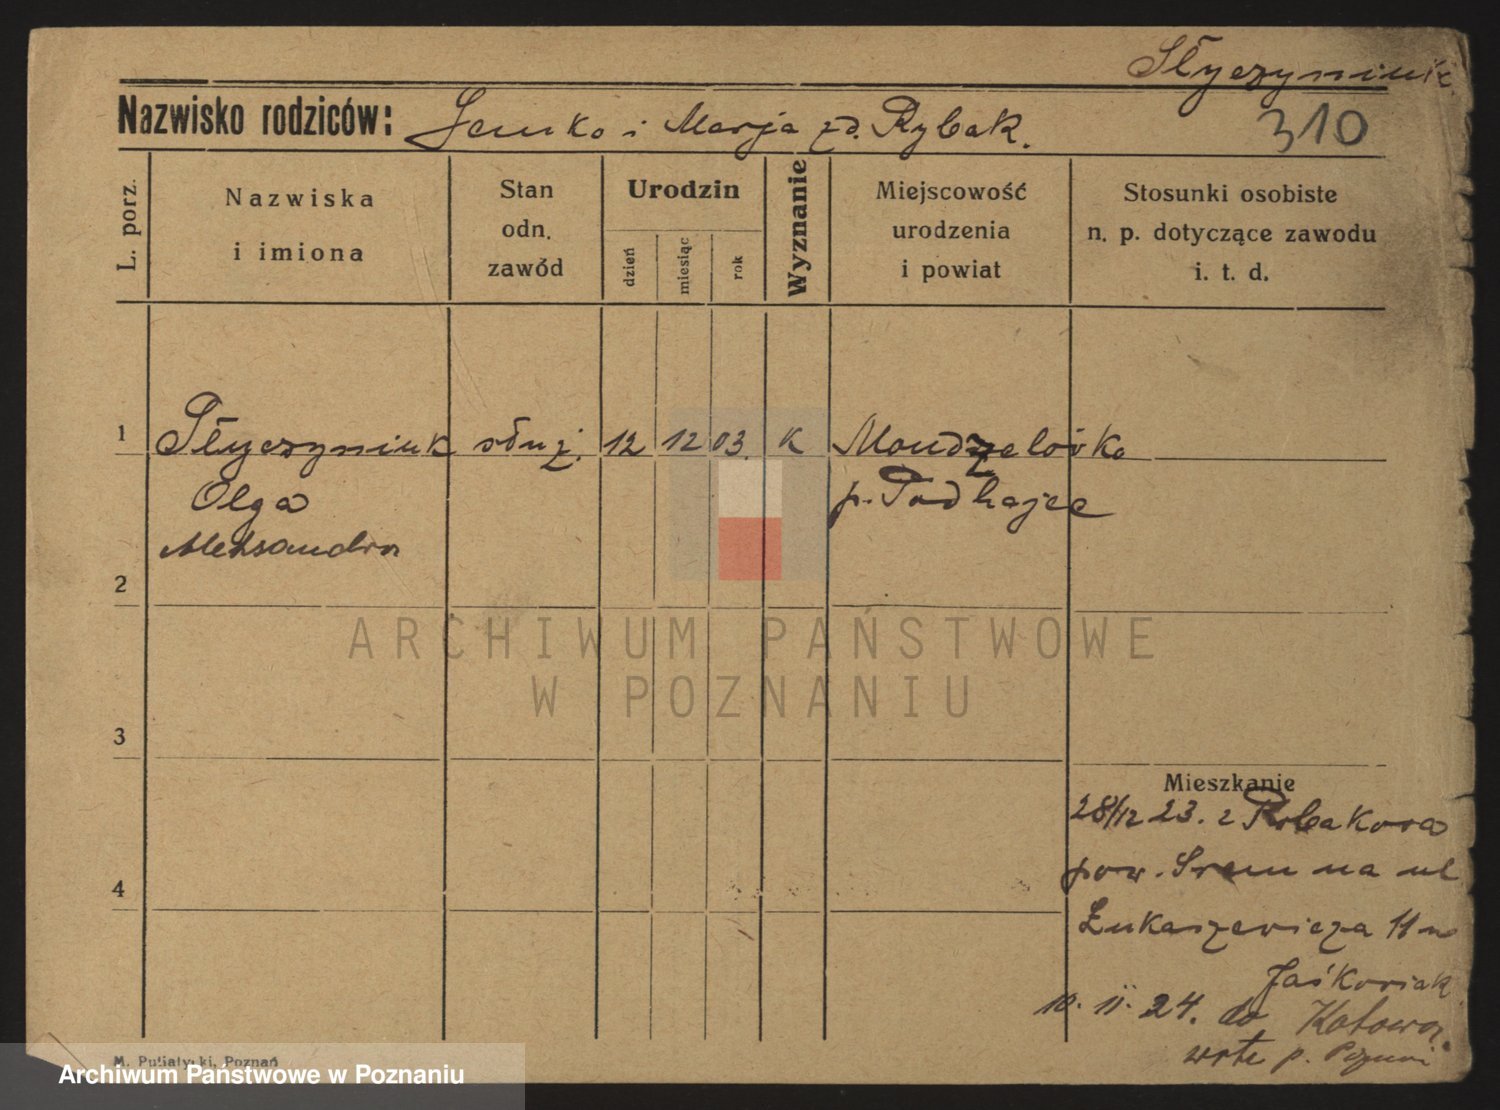 Styczyniuk
Nazwisko rodziców: Semko i Marja zd. Rybak.
310
L. porz.
Nazwiska
i imiona
Stan
odn.
zawód
Urodzin
dzień
miesiąc
rok
Wyznanie
Miejscowość
urodzenia
i powiat
Stosunki osobiste
n. p. dotyczące zawodu
i. t. d.
1 Styczyniuk służ. 12 12 03. K Mondzelówka
Olga p. Podhajce
Aleksandra
2
ARCHIWUM PAŃSTWOWE
W POZNANIU
3
Mieszkanie
28/12 23. z
pow. Srem na ul
4
Łukaszewicza 11
Jaśkowiak
10. II. 24. do
p.
M. Putiatycki, Poznań
Archiwum Państwowe w Poznaniu